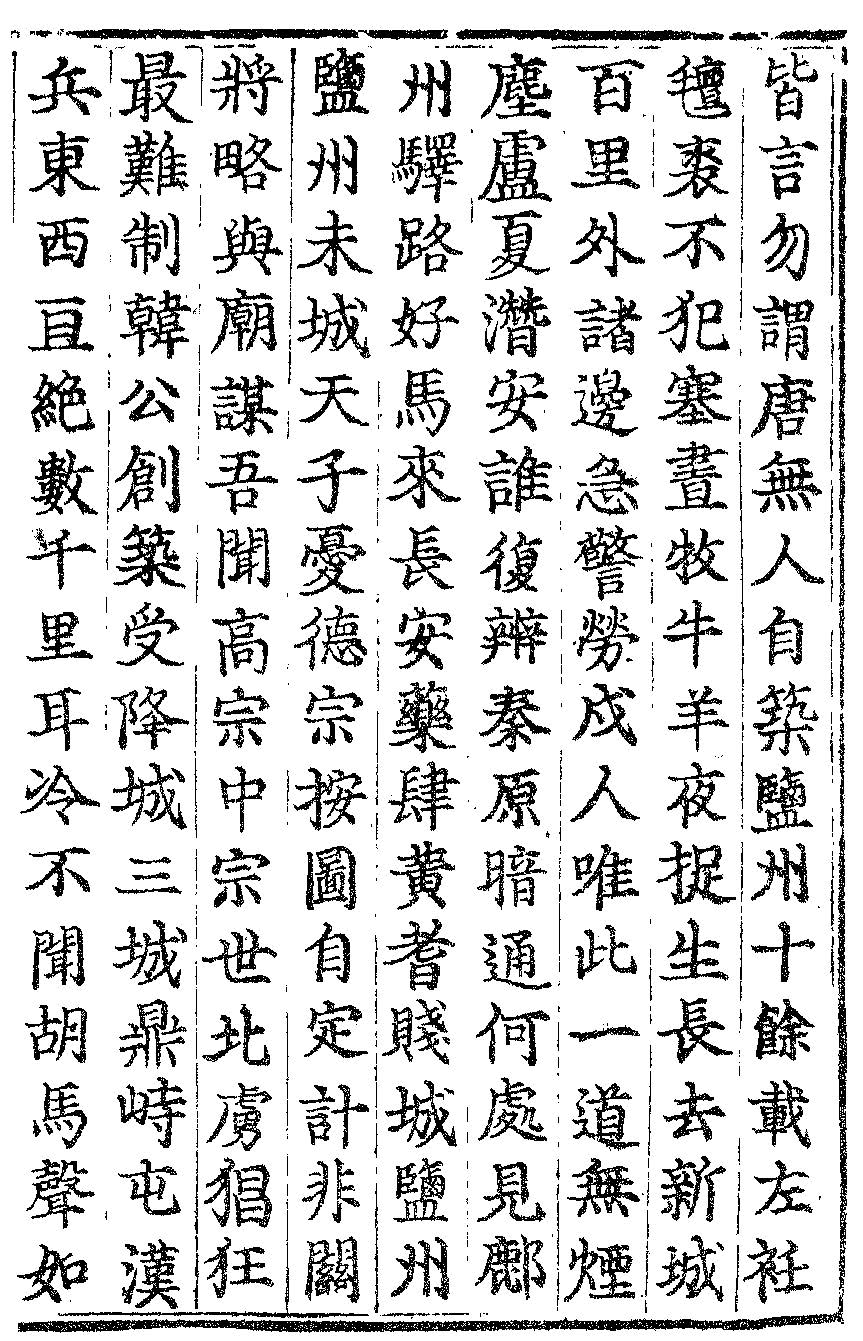 皆言勿謂唐無人自築鹽州十餘載左衽
氊裘不犯塞晝牧牛羊夜捉生長去新城
百里外諸邊急警勞戍人唯此一道無煙
塵廬夏潛安誰復辨秦原暗通何處見鄜
州驛路好馬來長安藥肆黄耆賤城鹽州
鹽州未城天子憂德宗按圖自定計非關
將略與廟謀吾聞高宗中宗世北虜猖狂
最難制韓公創築受降城三城鼎峙屯漢
兵東西亘絶數千里耳冷不聞胡馬聲如